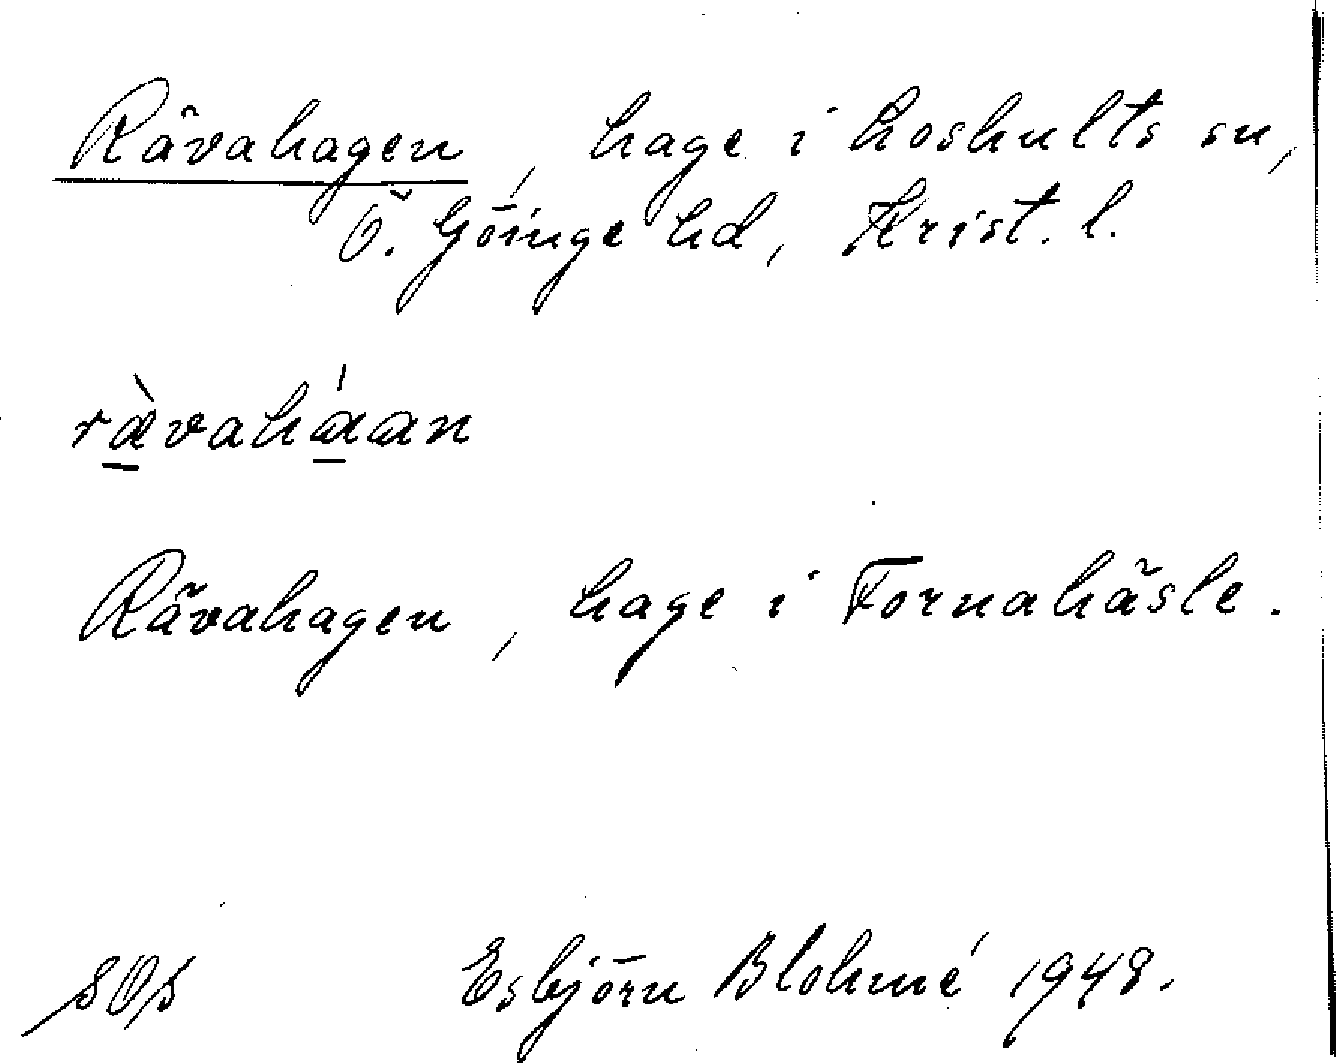 Rävahagen, hage i Loshults sn,
Ö. Göinge hd, Krist. l.
rævahaan
Rävahagen, hage i Fornahäsle.
Esbjörn Blohmé 1948.